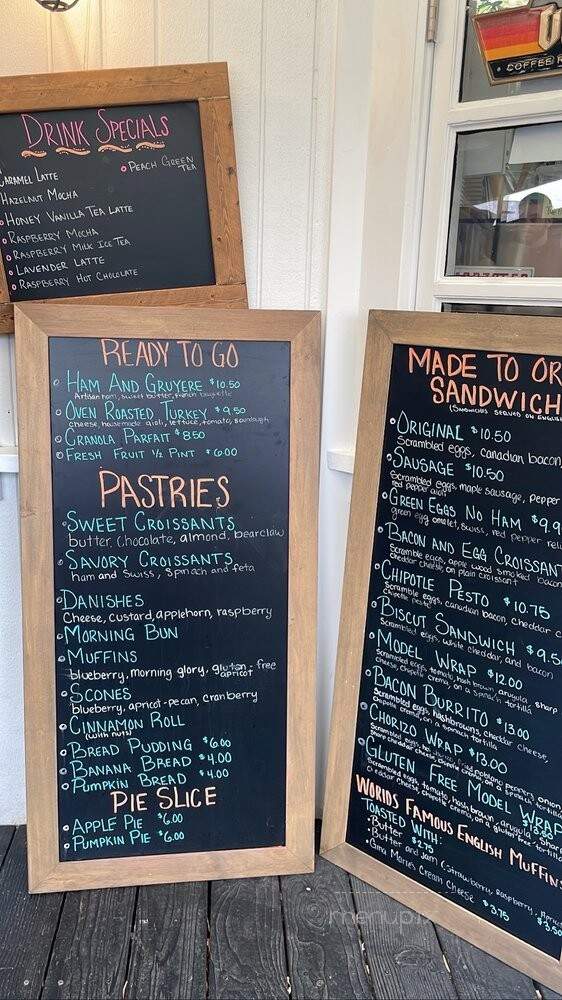 DRINK SPECIALS
CARAMEL LATTE
PEACH GREEN TEA
HAZELNUT MOCHA
HONEY VANILLA TEA LATTE
RASPBERRY MOCHA
RASPBERRY MILK ICE TEA
LAVENDER LATTE
RASPBERRY HOT CHOCOLATE
COFFEE
READY TO GO
HAM AND GRUYERE $10.50
Artisan ham, sweet butter, french baguette
OVEN ROASTED TURKEY $9.50
cheese, housemade aioli, lettuce, tomato, sourdough
GRANOLA PARFAIT $8.50
FRESH FRUIT ½ PINT $6.00
PASTRIES
SWEET CROISSANTS
butter, chocolate, almond, bearclaw
SAVORY CROISSANTS
ham and swiss, spinach and feta
DANISHES
Cheese, custard, applehorn, raspberry
MORNING BUN
MUFFINS
blueberry, morning glory, gluten-free apricot
SCONES
blueberry, apricot-pecan, cranberry
CINNAMON ROLL
(with nuts)
BREAD PUDDING $6.00
BANANA BREAD $4.00
PUMPKIN BREAD $4.00
PIE SLICE
APPLE PIE $6.00
PUMPKIN PIE $6.00
MADE TO OR
SANDWICH
(SANDWICHES SERVED ON ENGLISH
ORIGINAL $10.50
Scrambled eggs, canadian bacon,
SAUSAGE $10.50
Scrambled eggs, maple sausage, pepper
red pepper aioli
GREEN EGGS NO HAM $9.9
green egg omelet, swiss, red pepper reli
BACON AND EGG CROISSANT
Scramble eggs, apple wood smoked bacon
cheddar cheese on plain croissant
CHIPOTLE PESTO $10.75
Scramble eggs, canadian bacon, cheddar c
chipotle pesto
BISCUT SANDWICH $9.5
Scrambled eggs, white cheddar, and bacon
MODEL WRAP $12.00
Scrambled eggs, tomato, hash brown, arugula, sharp
cheese, chipotle crema, on a spinach tortilla
BACON BURRITO $13.00
Scrambled eggs, hashbrowns, cheddar cheese,
chipotle crema, on a spinach tortilla
CHORIZO WRAP $13.00
GLUTEN FREE MODEL WRAP
$13.50
Scrambled eggs, tomato, hash brown, arugula, Sharp
cheddar cheese, chipotle crema, on a gluten free tortilla
WORLDS FAMOUS ENGLISH MUFFINS
TOASTED WITH:
Butter $2.75
Butter and Jam (Strawberry, Raspberry, Apricot
$3.50
Gina Marie's Cream Cheese $3.75
menupix